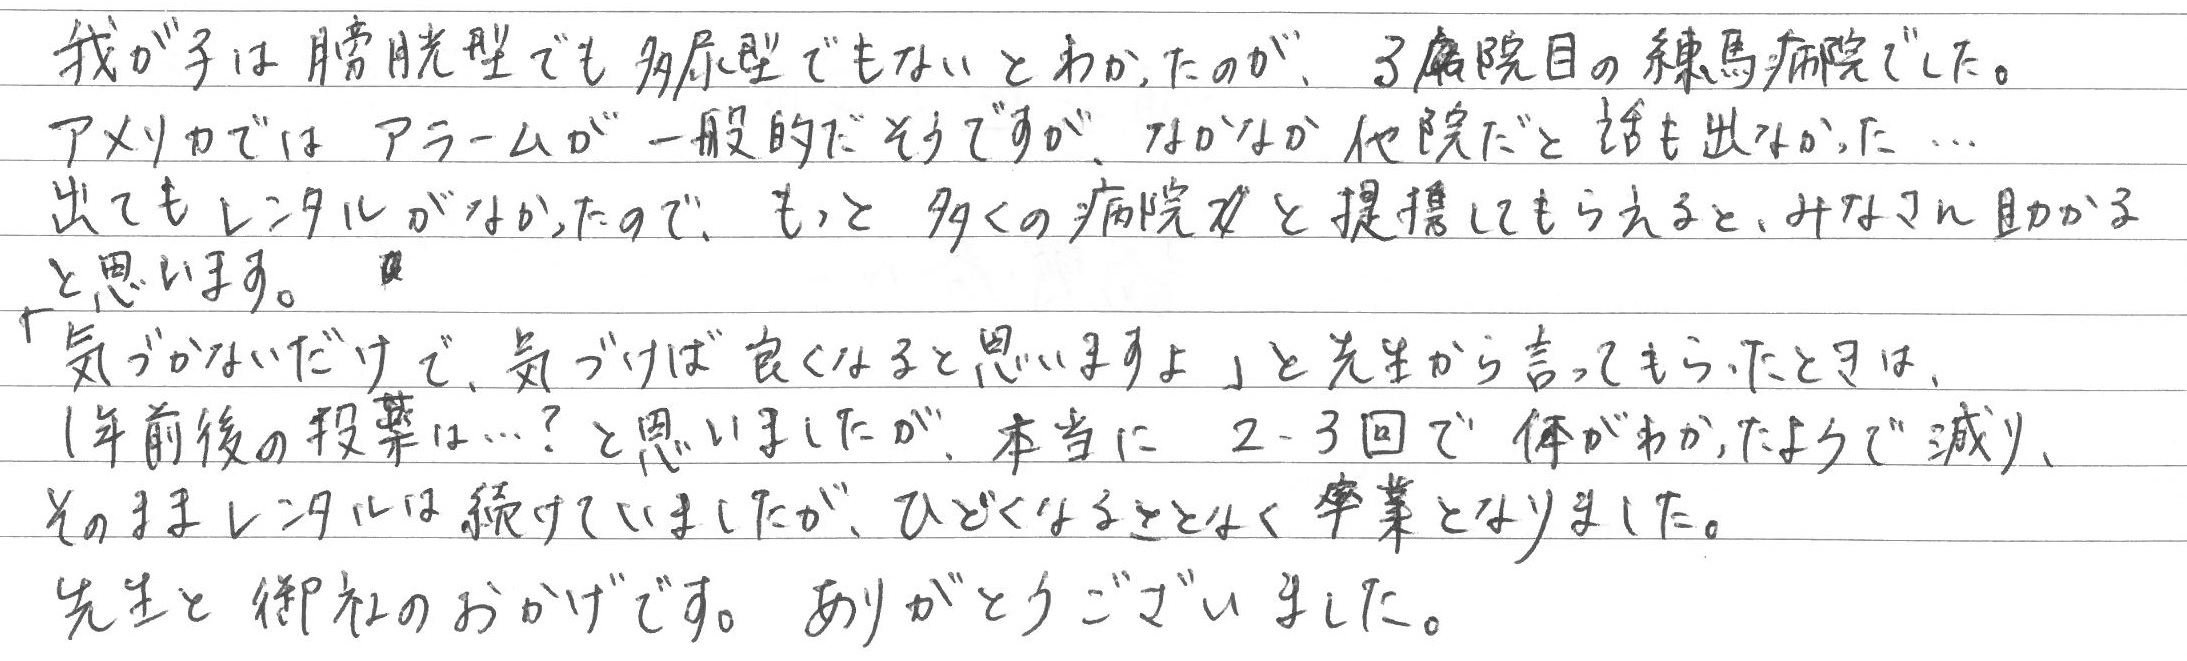 我が子は膀胱型でも多尿型でもないとわかったのが、3病院目の練馬病院でした。
アメリカではアラームが一般的だそうですが、なかなか他院だと話も出なかった…
出てもレンタルがなかったので、もっと多くの病院と提携してもらえると、みなさん助かる
と思います。
「気づかないだけで、気づけば良くなると思いますよ」と先生から言ってもらったときは、
1年前後の投薬は…?と思いましたが、本当に2-3回で体がわかったようで減り、
そのままレンタルは続けていましたが、ひどくなることなく卒業となりました。
先生と御社のおかげです。ありがとうございました。